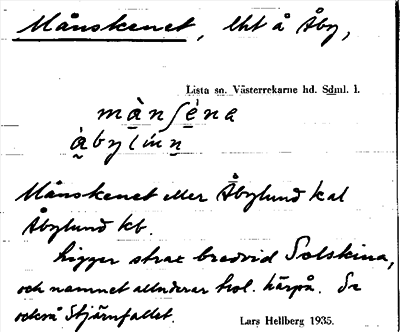 Månskenet, lht å Åby,
Lista sn. Västerrekarne hd. Sdml. 1.
mànʃèna
àbylùnn
Månskenet eller Åbylund kal
Åbylund kb.
Ligger strax bredvid Solskina,
och namnet alluderar trol. härpå. Se
också Stjärnfallet.
Lars Hellberg 1935.